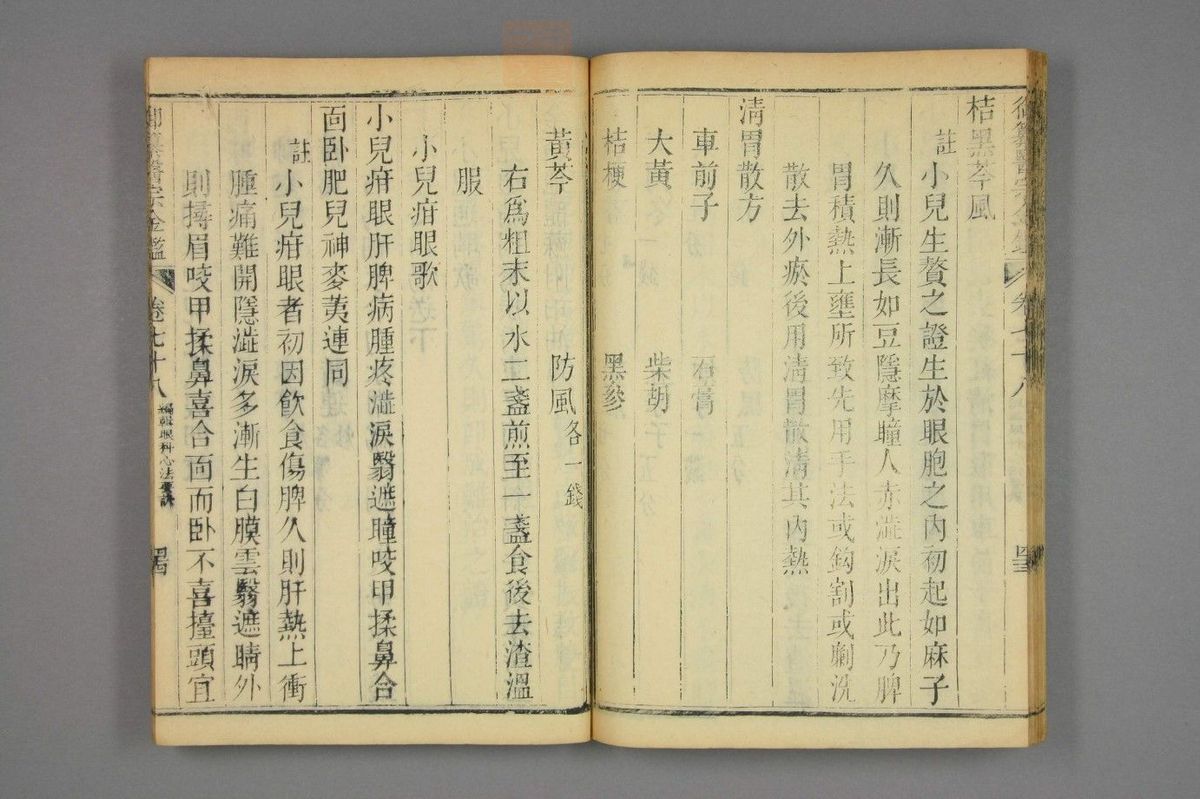 桔黑芩風
註小兒生贅之證生於眼胞之內初起如麻子
久則漸長如豆隱摩瞳人赤澁淚出此乃脾
胃積熱上壅所致先用手法或鈎割或劆洗
散去外瘀後用清胃散清其內熱
清胃散方
車前子 石膏
大黃 柴胡
桔梗 黑參
黃芩 防風各一錢
右爲粗末以水二盞煎至一盞食後去渣溫
服
小兒疳眼歌
小兒疳眼肝脾病腫疼澁淚翳遮瞳咬甲揉鼻合
面卧肥兒神麥蒺連同
註小兒疳眼者初因飮食傷脾久則肝熱上衝
腫痛難開隱澁淚多漸生白膜雲翳遮睛外
則撏眉咬甲揉鼻喜合面而卧不喜擡頭宜
御纂醫宗金鑑 卷七十八 編輯眼科心法要訣